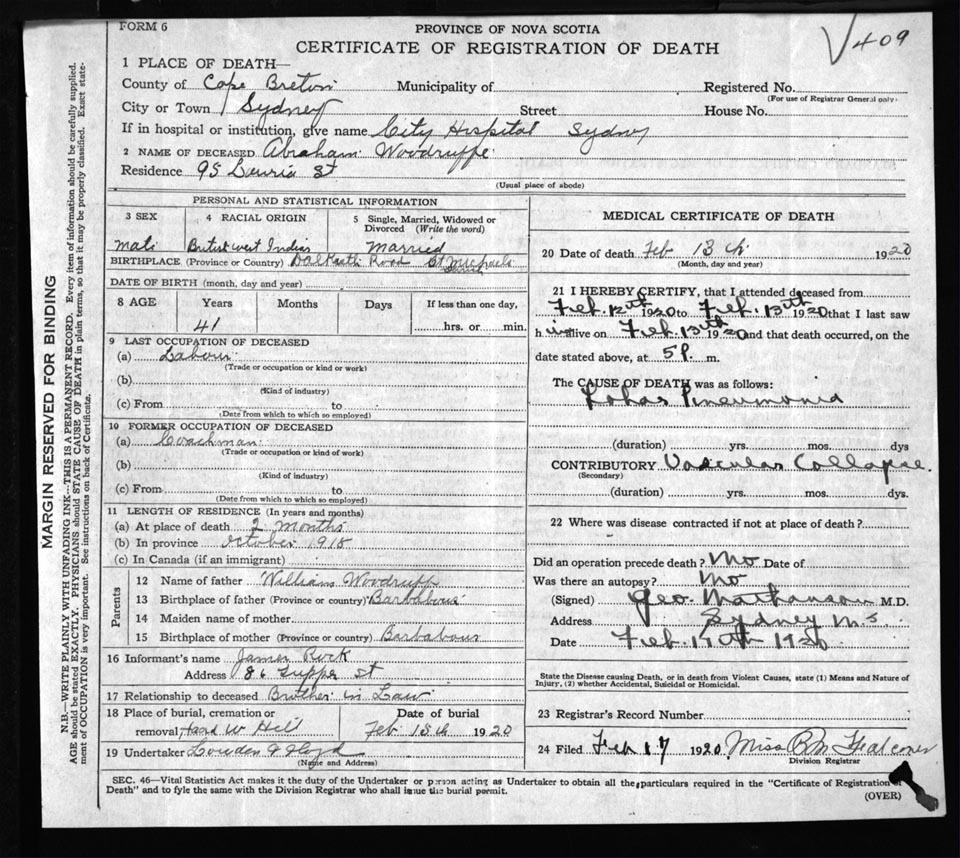 FORM 6
PROVINCE OF NOVA SCOTIA
CERTIFICATE OF REGISTRATION OF DEATH
409
1 PLACE OF DEATH—
County of Cape Breton Municipality of Registered No.
(For use of Registrar General only)
City or Town Sydney Street House No.
If in hospital or institution, give name City Hospital Sydney
2 NAME OF DECEASED Abraham Woodruffe
Residence 95 St
(Usual place of abode)
PERSONAL AND STATISTICAL INFORMATION
3 SEX 4 RACIAL ORIGIN 5 Single, Married, Widowed or Divorced (Write the word)
Male British west Indian Married
BIRTHPLACE (Province or Country) Dalkeith Road St Michaels
DATE OF BIRTH (month, day and year)
8 AGE Years Months Days If less than one day,
41 hrs. or min.
9 LAST OCCUPATION OF DECEASED
(a) Labour
(Trade or occupation or kind or work)
(b)
(Kind of industry)
(c) From to
(Date from which to which so employed)
10 FORMER OCCUPATION OF DECEASED
(a) Coachman
(Trade or occupation or kind of work)
(b)
(Kind of industry)
(c) From to
(Date from which to which so employed)
11 LENGTH OF RESIDENCE (In years and months)
(a) At place of death 2 Months
(b) In province October 1918
(c) In Canada (if an immigrant)
Parents
12 Name of father William Woodruff
13 Birthplace of father (Province or country) Barbabous
14 Maiden name of mother
15 Birthplace of mother (Province or country) Barbabous
16 Informant's name James Rock
Address 86 Tupper St
17 Relationship to deceased Brother in Law
18 Place of burial, cremation or Date of burial
removal Hard w Hill Feb 15th 1920
19 Undertaker Lowden & Floyd
(Name and Address)
MEDICAL CERTIFICATE OF DEATH
20 Date of death Feb 13th 1920
(Month, day and year)
21 I HEREBY CERTIFY, that I attended deceased from
Feb. 12th 1920 to Feb. 13th 1920 that I last saw
h im alive on Feb. 13th 1920 and that death occurred, on the
date stated above, at 5 P. m.
The CAUSE OF DEATH was as follows:
Lobar Pneumonia
(duration) yrs. mos. dys
CONTRIBUTORY Vascular Collapse.
(Secondary)
(duration) yrs. mos. dys.
22 Where was disease contracted if not at place of death?
Did an operation precede death? No Date of
Was there an autopsy? No
(Signed) Geo. M.D.
Address Sydney N.S.
Date Feb. 1920
State the Disease causing Death, or in death from Violent Causes, state (1) Means and Nature of
Injury, (2) whether Accidental, Suicidal or Homicidal.
23 Registrar's Record Number
24 Filed Feb 17 1920 Miss Falconer
Division Registrar
SEC. 46—Vital Statistics Act makes it the duty of the Undertaker or person acting as Undertaker to obtain all the particulars required in the "Certificate of Registration of
Death" and to fyle the same with the Division Registrar who shall issue the burial permit.
(OVER)
MARGIN RESERVED FOR BINDING
N.B.—WRITE PLAINLY WITH UNFADING INK—THIS IS A PERMANENT RECORD. Every item of information should be carefully supplied.
AGE should be stated EXACTLY. PHYSICIANS should STATE CAUSE OF DEATH in plain terms, so that it may be properly classified. Exact state-
ment of OCCUPATION is very important. See instructions on back of Certificate.